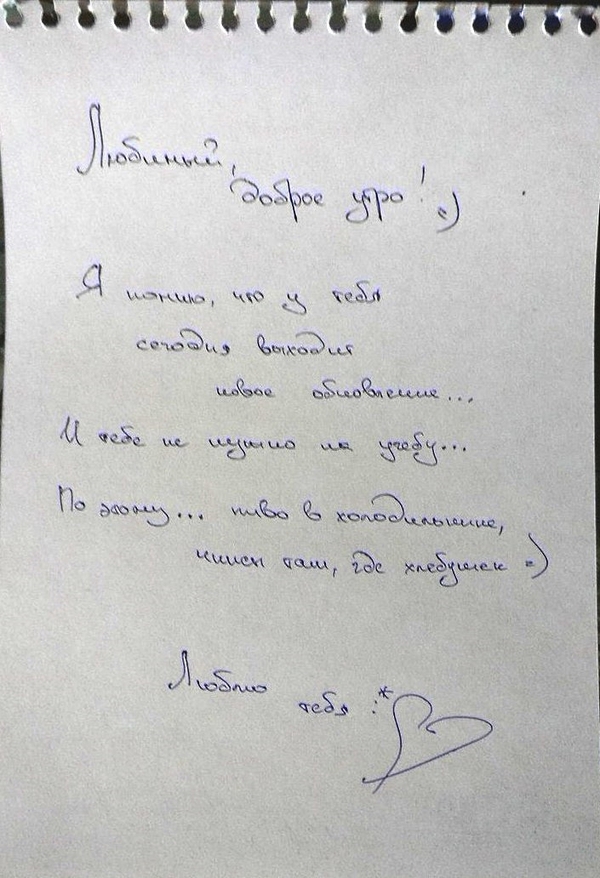 Любимый,
доброе утро! =)
Я помню, что у тебя
сегодня выходит
новое обновление...
И тебе не нужно на учебу...
По этому... пиво в холодильнике,
чипсы там, где хлебушек =)
Люблю
тебя :*